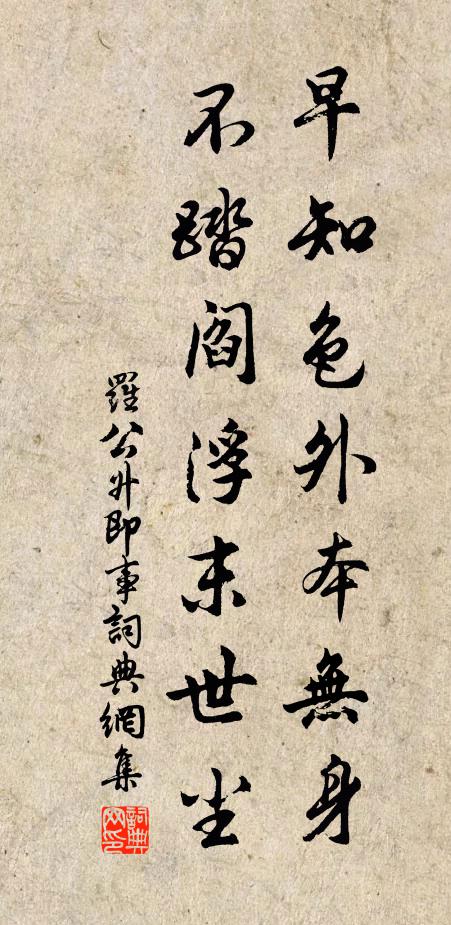 早知色外本無身
不踏閻浮末世尘
羅公升即事詞典網集
詞典网印